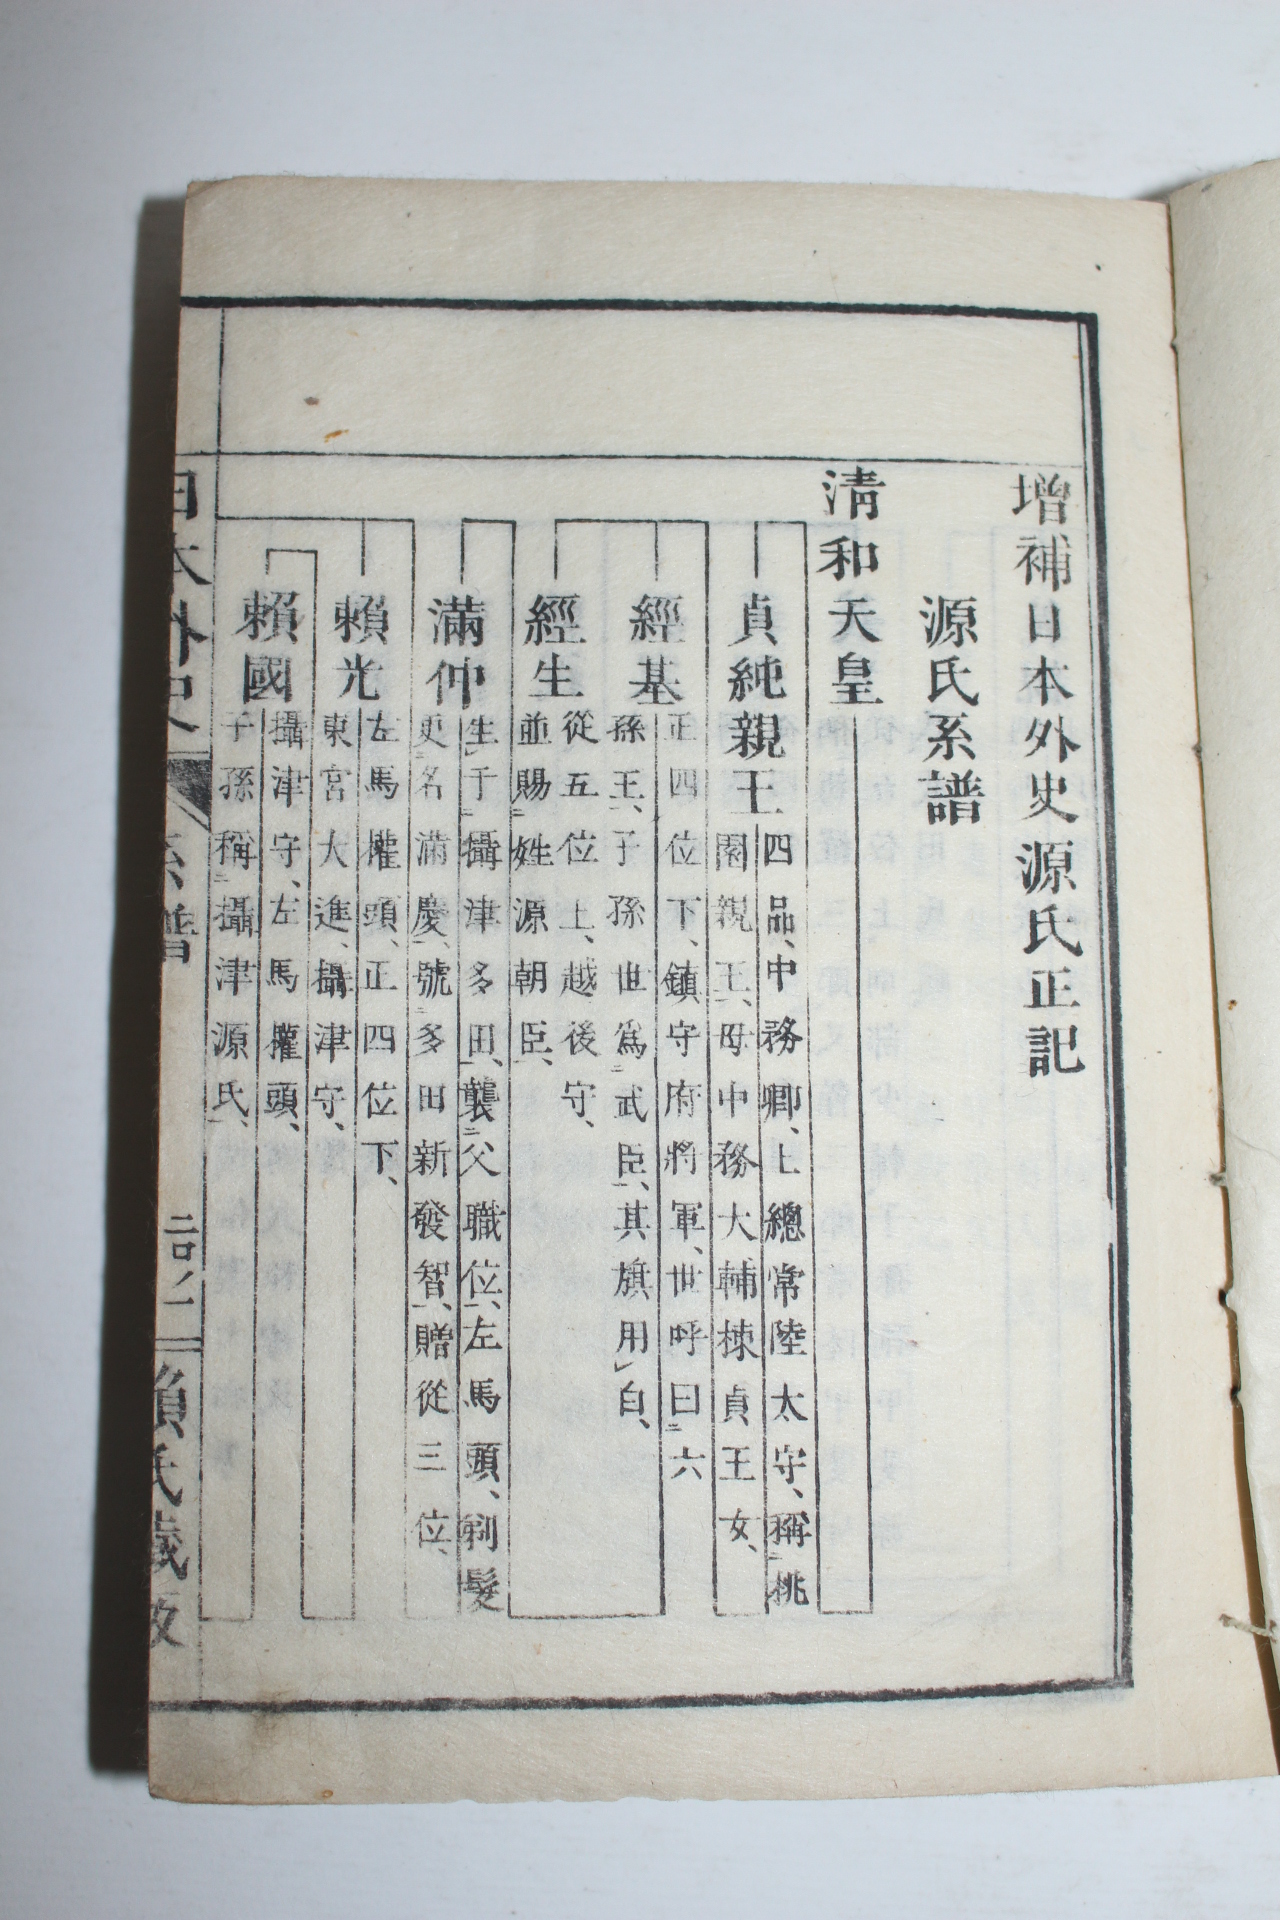 增補日本外史源氏正記
源氏系譜
清和天皇
貞純親王
四品、中務卿、上總常陸太守、稱二桃
園親王一、母中務大輔棟貞王女、
經基
正四位下、鎮守府將軍、世呼曰二六
孫王一、子孫世爲武臣一、其旗用レ白、
經生
從五位上、越後守、
並賜二姓源朝臣一、
滿仲
生レ于二攝津多田一、襲二父職位一、左馬頭、剃髮
更二名滿慶一、號二多田新發智一、贈從三位、
賴光
左馬權頭、正四位下、
東宮大進、攝津守、
賴國
攝津守、左馬權頭、
子孫稱二攝津源氏一、
日本外史 系譜 賴氏藏板